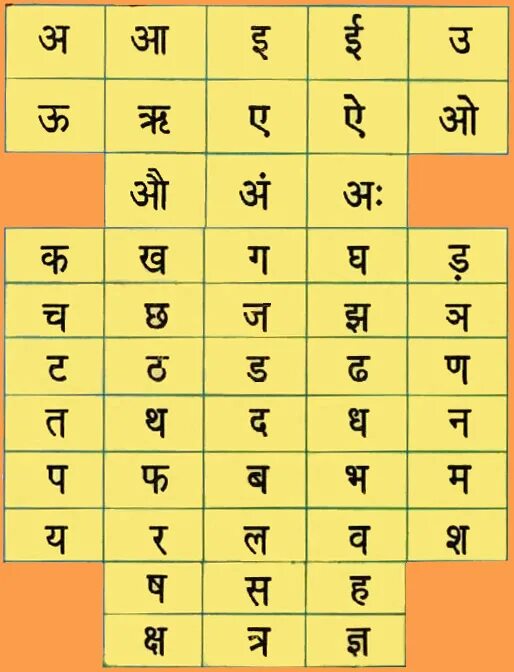 अ आ इ ई उ
ऊ ऋ ए ऐ ओ
औ अं अः
क ख ग घ ड़
च छ ज झ ञ
ट ठ ड ढ ण
त थ द ध न
प फ ब भ म
य र ल व श
ष स ह
क्ष त्र ज्ञ